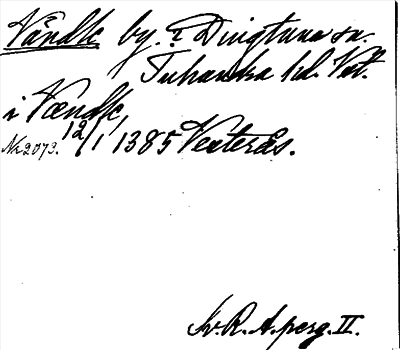 Våndle by. i Dingtuna sn.
Tuhundra hd. Vstm.
i Vændle,
12/1 1385 Vesterås.
Nr 2073.
Sv. R. A. perg. II.